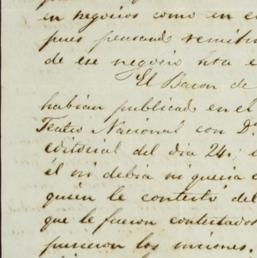 en negocios como en e
pues pensando remitir
de ese negocio hta e
El Baron de
habian publicado en el
Teatro Nacional con D.
editorial del dia 24;
él ni debia ni queria
quien le contestó del
que le fueron contestados
pusieron los